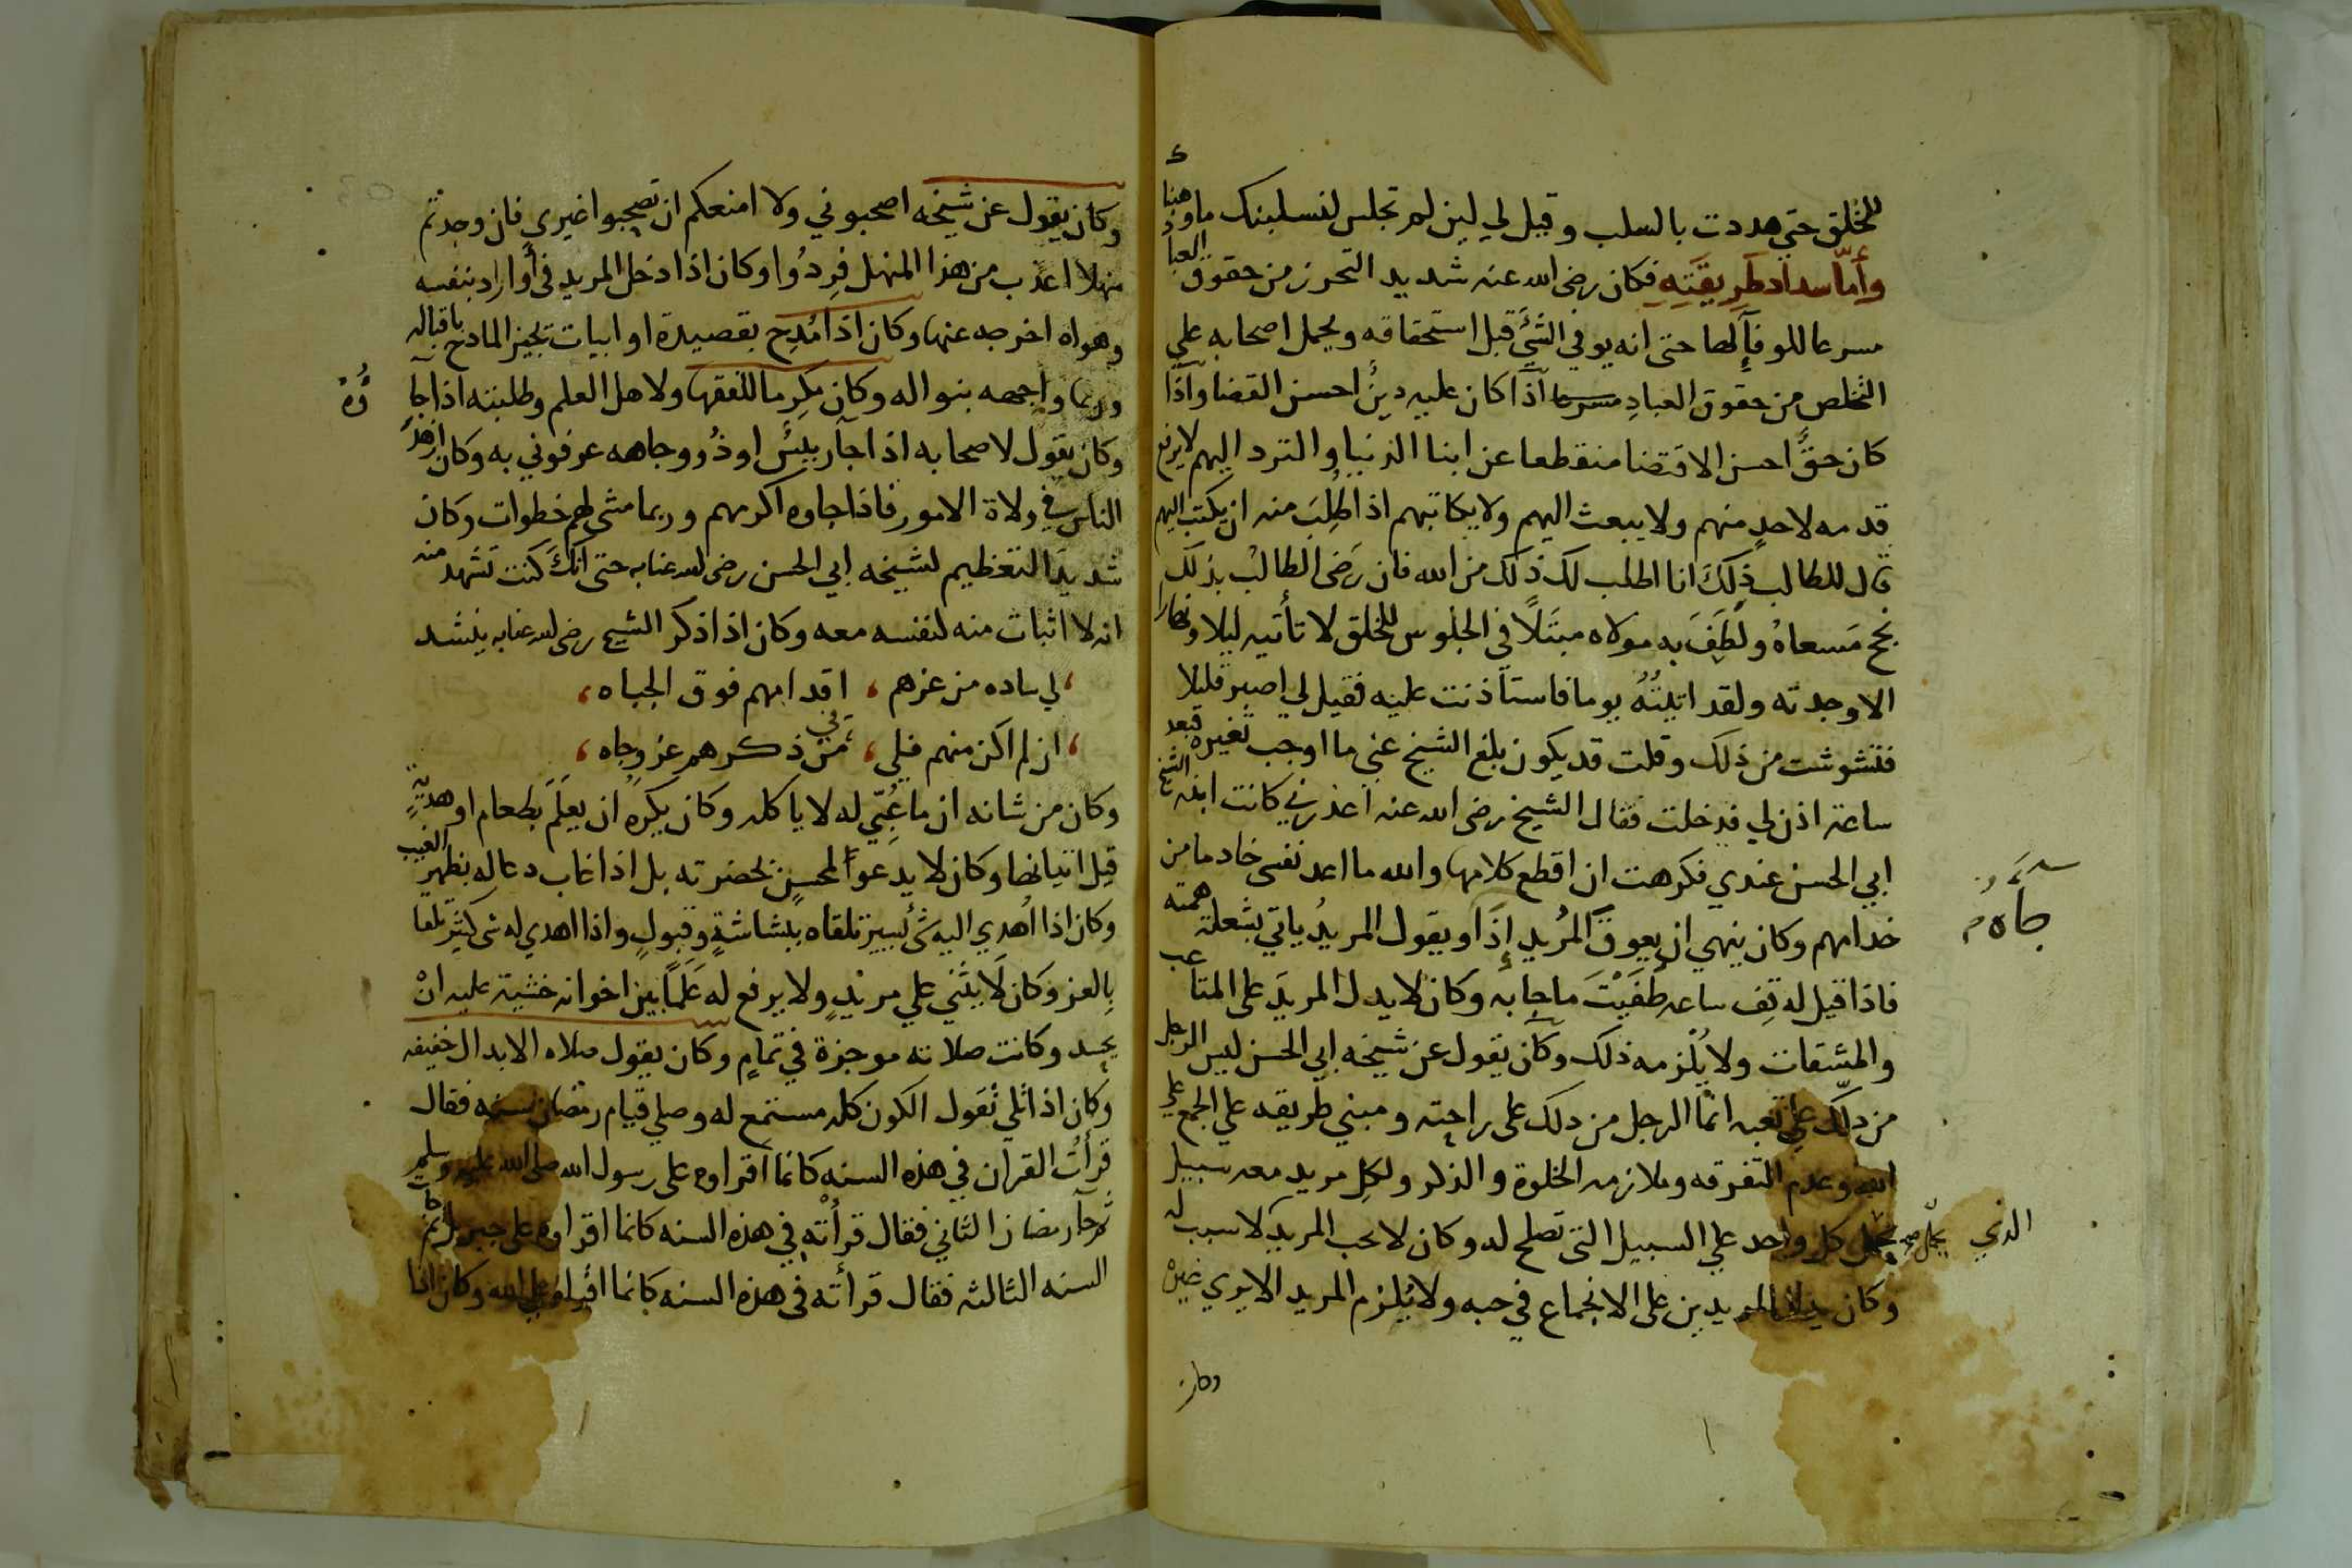 للخلق حتي هددت بالسلب وقيل لي لين لم تجلس لنسلبنك ما وهبنا
وأمّا سداد طَرِيقَتِهِ فكان رضى الله عنه شديد التحرز من حقوق العباد
مسرعا للوفآءِ لها حتى انه يوفي الشَّئَ قبل استحقاقه ويحمل اصحابه علي
التخلص من حقوق العبادِ اذا كان عليه دينُ احسن القضا واذا
كان حقُّ احسن الاقتضا منقطعا عن ابنا الدنيا والتردد اليهم لا يرفع
قدمه لاحدٍ منهم ولا يبعث اليهم ولا يكاتبهم اذا طُلِبَ منه ان يكتب اليهم
قال للطالب ذلكَ انا اطلب لك ذلك من الله فان رَضى الطالبُ بذلك
نجح مَسعاهُ ولُطِفَ به مولاه مبتَلاً في الجلوس للخلق لا تأتيه ليلا ونهارا
الا وجدته ولقد اتيتُهُ يوما فاستأذنت عليه فقيل لي اصبر قليلا
فتشوشت من ذلك وقلت قد يكون بلغ الشيخ عني ما اوجب تغيره فبعد
ساعة اذن لي فدخلت فقال الشيخ رضى الله عنه اعذرني كانت ابنة الشيخ
ابي الحسن عندي فكرهت ان اقطع كلامها والله ما اعد نفسي خادما من
خدامهم وكان ينهى ان يعوق المُريد إذَا ويقول المريدُ ياتي بشعلة همته
فاذا قيل له قِف ساعه طفَيَتْ ما جا به وكان لا يدل المريدَ على المتاعب
والمشقات ولا يُلْزمه ذلك وكان يقول عن شيخه ابي الحسن ليس الرجل
من دلّك علي تعبه انمّا الرجل من دلك على راحته ومبني طريقه علي الجمع علي
الله وعدم التفرقه وملازمه الخلوة والذكر ولكلِ مريد معه سبيل
يحمل كل واحد علي السبيل التى تصلح له وكان لا يحب المريد لا سبب له
وكان يدل المريدين على الانجماع في حبه ولا يُلزم المريد الا يري غيره
جآه
الذي
يحمل صح
وكان
وكان يقول عن شيخه اصحبوني ولا امنعكم ان تصحبوا غيري فان وجدتم
منهلا اعذب من هذا المنهل فِردُوا وكان اذا دخل المريد في أوراد بنفسه
وهواه اخرجه عنها وكان اذا مُدِح بقصيدة او ابيات يجيز المادح باقباله
وربما واجهه بنواله وكان مكرِما للفقها ولاهل العلم وطلبته اذا جآ
وُهُ
وكان يقول لاصحابه اذا جآ رييسُ او ذُو وجاهه عرفوني به وكان ازهدُ
الناس في ولاة الامور فاذا جاوه اكرمهم وربما مشى لهم خطوات وكان
شديدَ التعظيم لشيخه ابي الحسن رضى الله عنا به حتى انكَ كنت تشهد منه
انه لا اثبات منه لنفسه معه وكان اذا ذكر الشيخ رضى الله عنا به ينشد
لي ساده من عزهم ، اقدامهم فوق الجباه ،
ان لم اكن منهم فلي ، في ذكرهم عز وجاه ،
وكان من شانه ان ما عُبّي له لا ياكله وكان يكره ان يعلَمَ بطعام او هديةٍ
قبل اتيانها وكان لا يدعوا لمحسنٍ بحضرته بل اذا غاب دعا له بظهر الغيب
وكان اذا اُهدي اليه شئُ يسير تلقاه ببشاشةٍ وقبولٍ واذا اهدي له شى كثير تلقا
بِالعز وكان لَا يثني علي مريدٍ ولا يرفع له عَلَماً بين اخوانه خشية عليه انْ
يحسد وكانت صلاته موجزة في تمامٍ وكان يقول صلاه الابدال خفيفه
وكان اذا تلي تقول الكون كله مستمع له وصلي قيام رمضان سنه فقال
قرأتُ القران في هذه السنه كانما اقراوه على رسول الله صلى الله عليه وسلم
ثم جآ رمضان الثاني فقال قرأته في هذه السنه كانما اقراوه على جبريل ثم كانت
السنه الثالثه فقال قرأته في هذه السنه كانما اقراوه علي الله وكان اذا